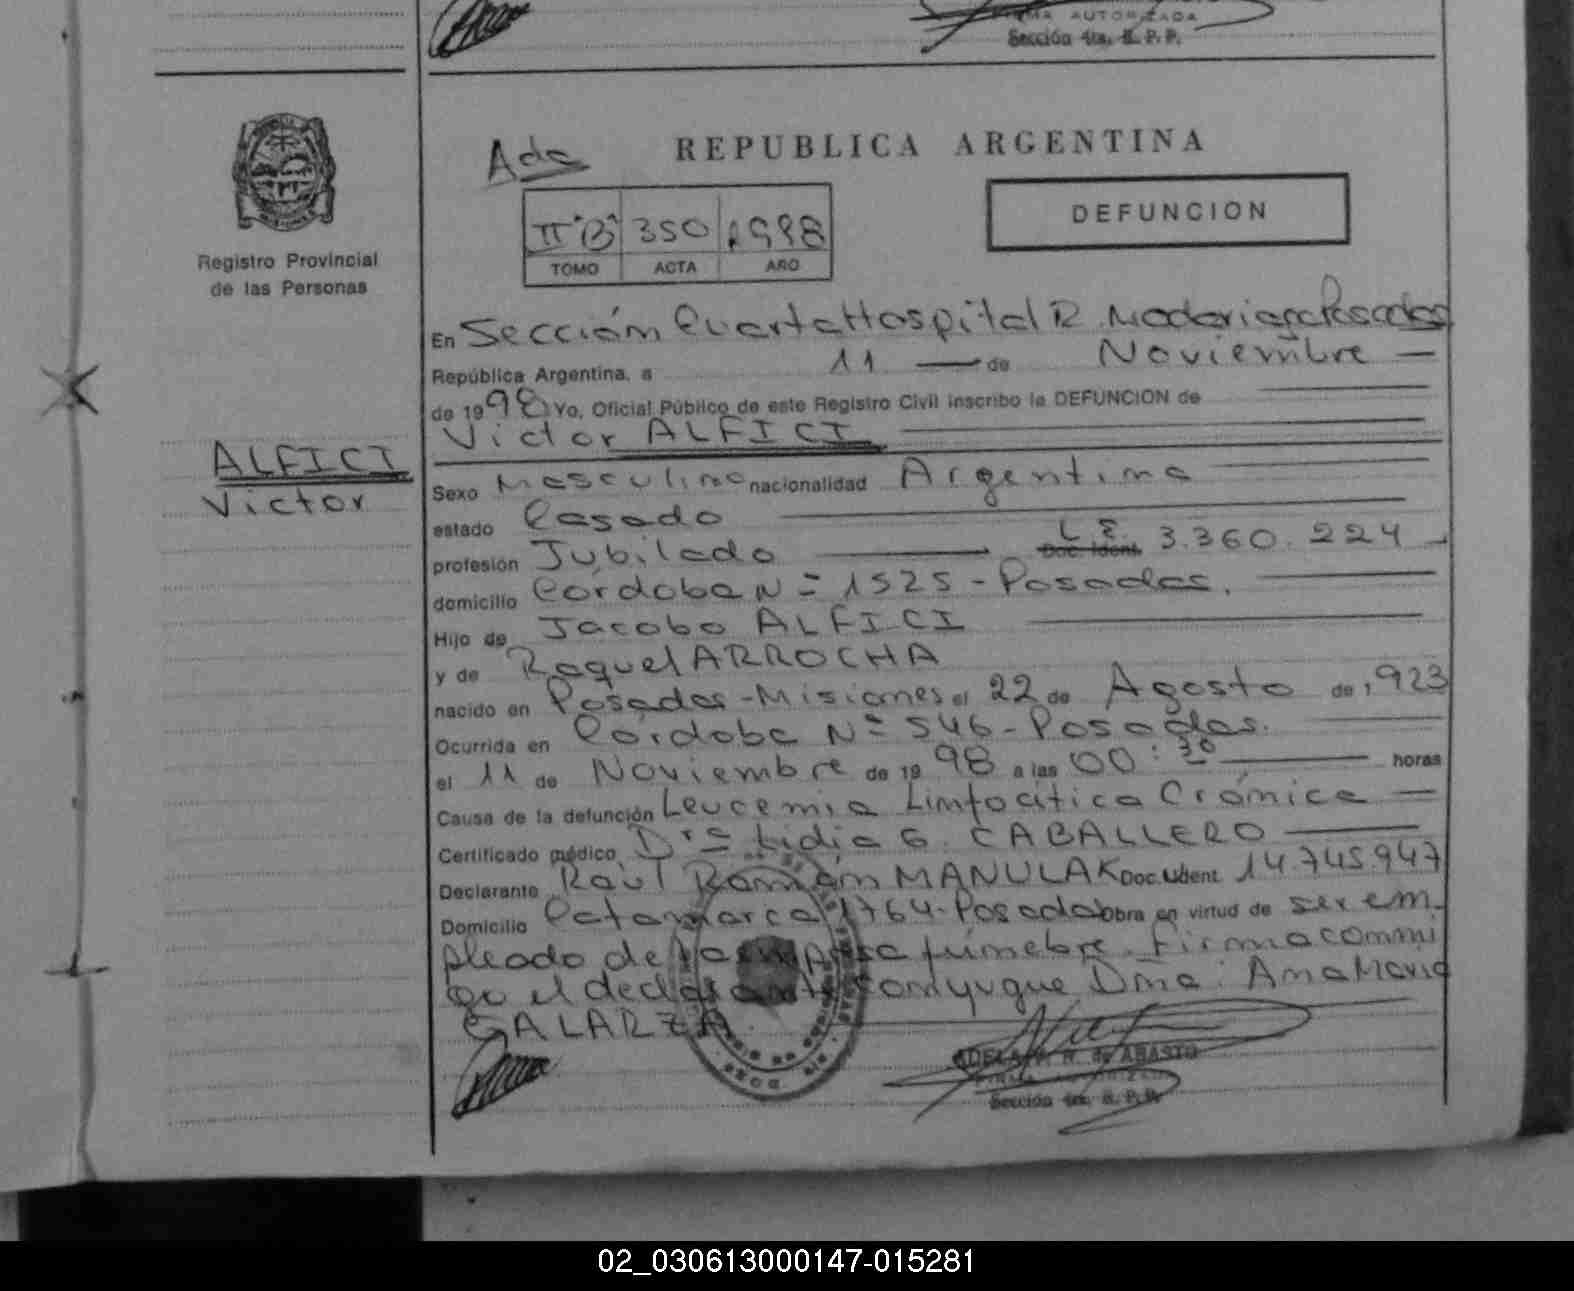 FIRMA AUTORIZADA
Sección 4ta. R. P. P.
REPUBLICA ARGENTINA
DEFUNCION
350 1998
TOMO ACTA AÑO
Registro Provincial
de las Personas
En Sección Cuarta Hospital R. Madariaga Posadas
República Argentina, a 11 de Noviembre
de 1998 Yo, Oficial Público de este Registro Civil inscribo la DEFUNCION de
Victor ALFICI
ALFICI
Victor
Sexo Masculino nacionalidad Argentina
estado Casado
profesión Jubilado L.E. Doc. Ident. 3.360.224
domicilio Córdoba Nº 1525 - Posadas.
Hijo de Jacobo ALFICI
y de Raquel ARROCHA
nacido en Posadas - Misiones el 22 de Agosto de 1923
Ocurrida en Córdoba Nº 546 - Posadas.
el 11 de Noviembre de 1998 a las 00:30 horas
Causa de la defunción Leucemia Linfocítica Crónica
Certificado médico Drª Lidia G. CABALLERO
Declarante Raúl Román MANULAK Doc. Ident. 14.745.947
Domicilio Catamarca 1764 - Posadas Obra en virtud de ser em-
pleado de la empresa fúnebre. Firma conmi
go el declarante conyugue Dña: Ana Maria
GALARZA.
de ABASTO
Sección 4ta. R. P. P.
02_030613000147-015281